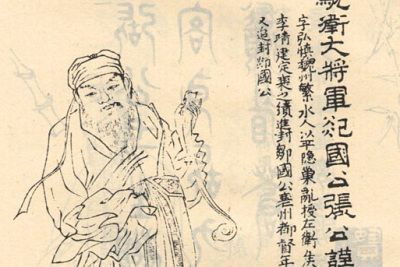 衛大將軍郯國公張公謹
字弘慎魏州繁水人以平隱巢亂授左衛
李靖建定襄之績進封鄒國公襄州都督年
又追封郯國公